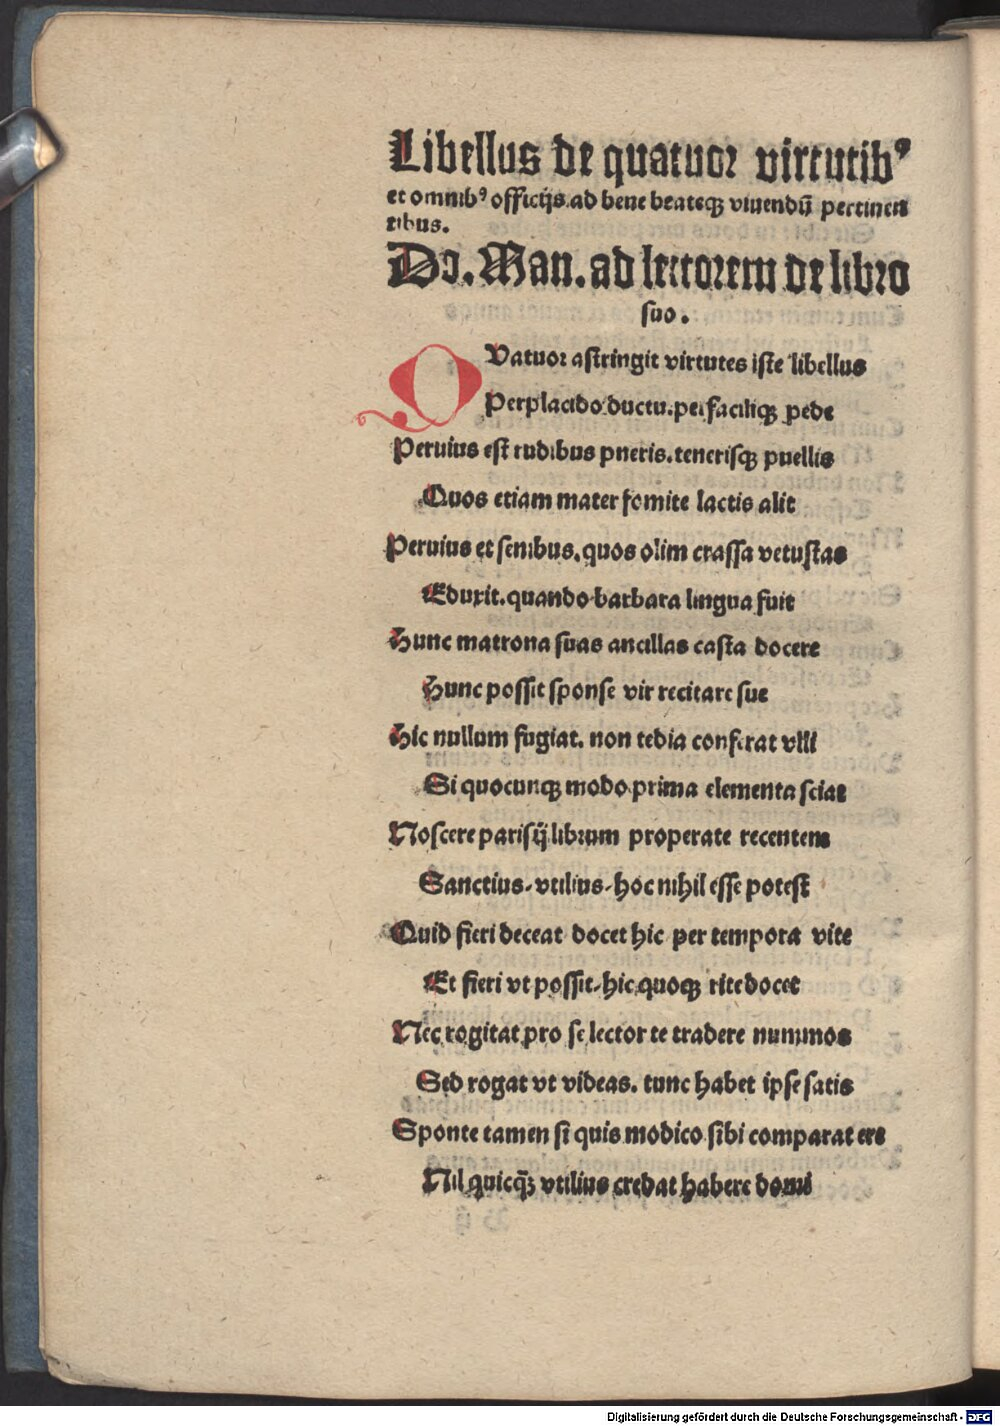 Libellus de quatuor virtutibꝰ
et omnibꝰ officijs.ad bene beateqꝫ viuendū pertinen
tibus.
Do. Man. ad lectorem de libro
suo.
QVatuor astringit virtutes iste libellus
Perplacido ductu.per faciliqꝫ pede
Peruius est rudibus pueris.tenerisqꝫ puellis
Quos etiam mater fomite lactis alit
Peruius et senibus.quos olim crassa vetustas
Eduxit.quando barbara lingua fuit
Hunc matrona suas ancillas casta docere
Hunc possit sponse vir recitare sue
Hic nullum fugiat. non tedia conferat vlli
Si quocunqꝫ modo prima elementa sciat
Noscere parisij librum properate recentem
Sanctius. vtilius. hoc nihil esse potest
Quid fieri deceat docet hic per tempora vite
Et fieri vt possit. hic quoqꝫ rite docet
Nec rogitat pro se lector te tradere nummos
Sed rogat vt videas. tunc habet ipse satis
Sponte tamen si quis modico sibi comparat ere
Nil quicqꝫ̃ vtilius credat habere domi
Digitalisierung gefördert durch die Deutsche Forschungsgemeinschaft - DFG